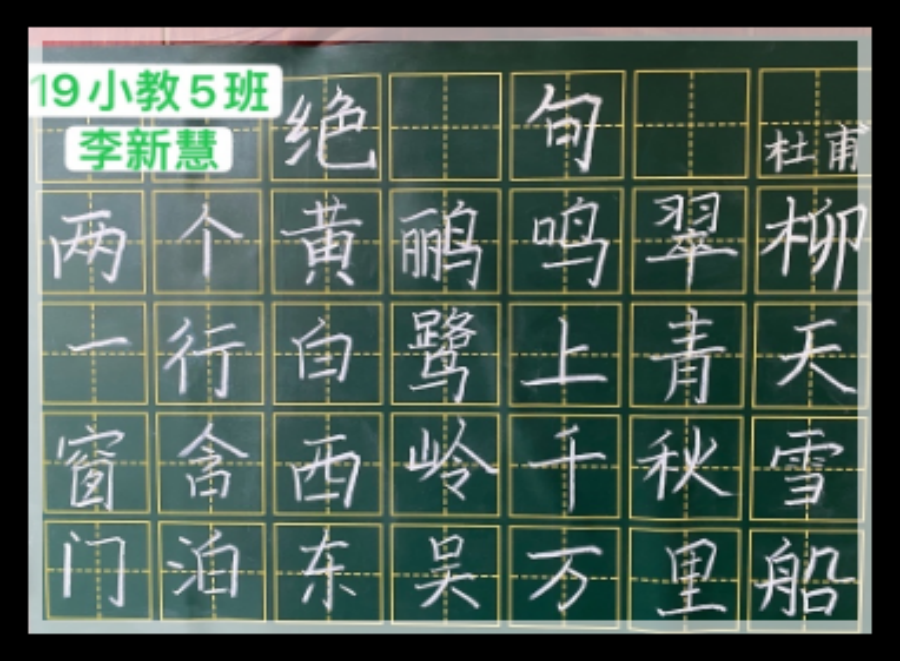 19小教5班
李新慧
绝 句
杜甫
两个黄鹂鸣翠柳
一行白鹭上青天
窗含西岭千秋雪
门泊东吴万里船